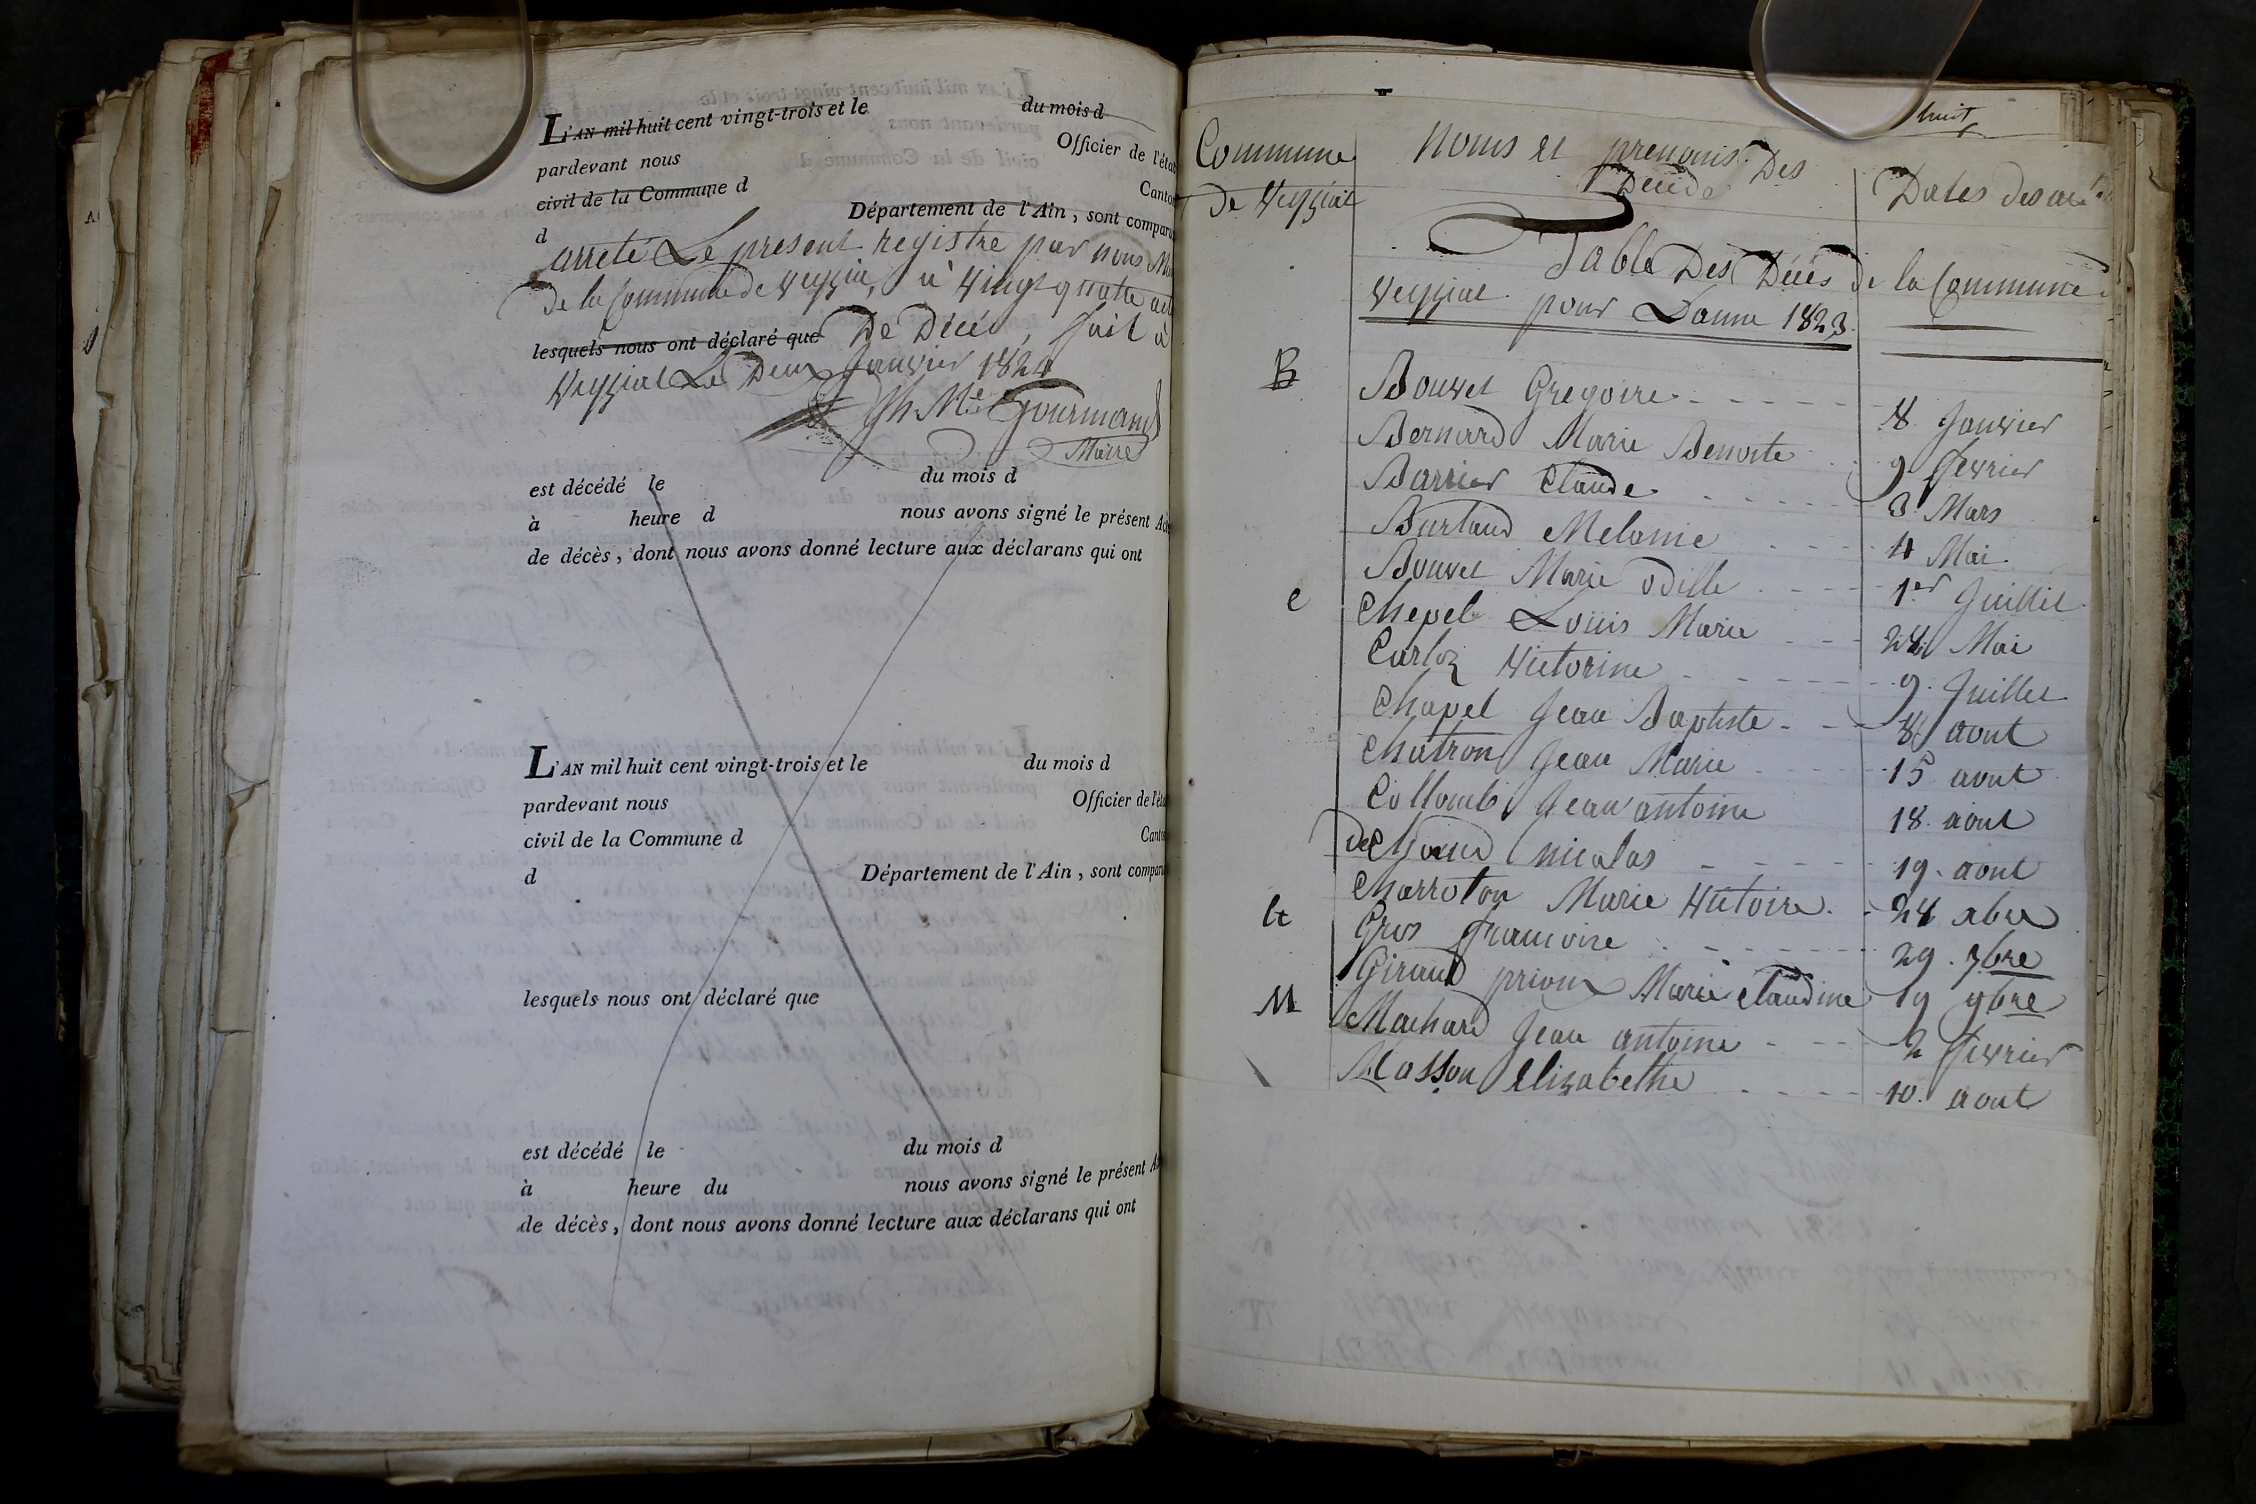 L'AN mil huit cent vingt-trois et le du mois d
pardevant nous Officier de l'état
civil de la Commune d Canton
d Département de l'Ain, sont comparus
arreté Le présent registre par nous Maire
De la Commune de Veyziat, à Vingt quatre actes
lesquels nous ont déclaré que De Décés, fait à
Veyziat Le Deux Janvier 1824
Jh Mie Gourmand
Maire
est décédé le du mois d
à heure d nous avons signé le présent Acte
de décès, dont nous avons donné lecture aux déclarans qui ont
L'AN mil huit cent vingt-trois et le du mois d
pardevant nous Officier de l'état
civil de la Commune d Canton
d Département de l'Ain, sont comparus
lesquels nous ont déclaré que
est décédé le du mois d
à heure du nous avons signé le présent Acte
de décès, dont nous avons donné lecture aux déclarans qui ont
huit
Commune de Veyziat
Noms et prenoms Des Décédés
Dates des actes
Table Des Décés de la Commune
Veyziat pour Lanne 1823.
B Bouvet Gregoire 8 Janvier
Bernard Marie Benoite 9 fevrier
Barrier Claude 3 Mars
Burtaud Melanie 4 Mai
Bouvet Marie Odille 1er Juillet
C Chapel Louis Marie 28 Mai
Carloz Victorine 9 Juillet
Chapel Jean Baptiste 8 aout
Chatron Jean Marie 15 aout
Collomb Jean antoine 18 aout
nicolas 19 aout
Charroton Marie Victoire 28 xbre
G Gros francoise 29 7bre
Giraud prioux Marie Claudine 19 9bre
M Machard Jean antoine 2 fevrier
Masson Elizabethe 10 aout